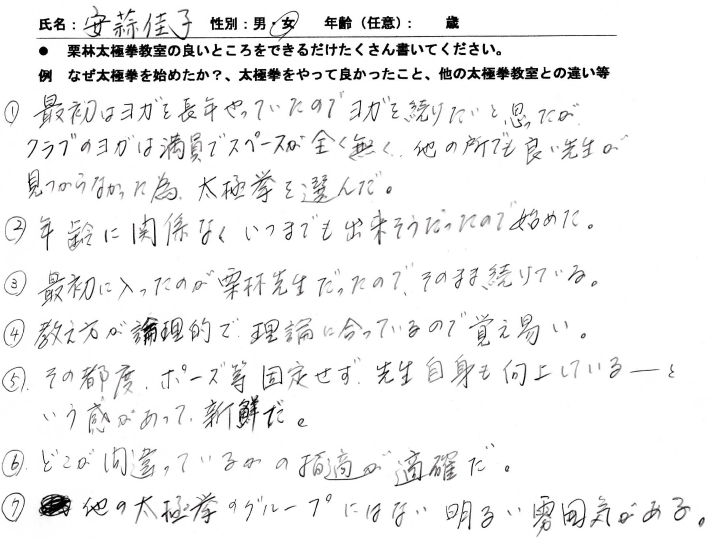 氏名：安蒜佳子　性別：男・女　年齢（任意）：　　歳
● 栗林太極拳教室の良いところをできるだけたくさん書いてください。
例 なぜ太極拳を始めたか？、太極拳をやって良かったこと、他の太極拳教室との違い等
① 最初はヨガを長年やっていたのでヨガを続けたいと思ったが、
クラブのヨガは満員でスペースが全く無く、他の所でも良い先生が
見つからなかった為、太極拳を選んだ。
② 年齢に関係なくいつまでも出来そうだったので始めた。
③ 最初に入ったのが栗林先生だったので、そのまま続けている。
④ 教え方が論理的で、理論に合っているので覚え易い。
⑤ その都度、ポーズ等固定せず、先生自身も向上している――と
いう感があって、新鮮だ。
⑥ どこが間違っているかの指摘が適確だ。
⑦ 他の太極拳のグループにはない明るい雰囲気がある。